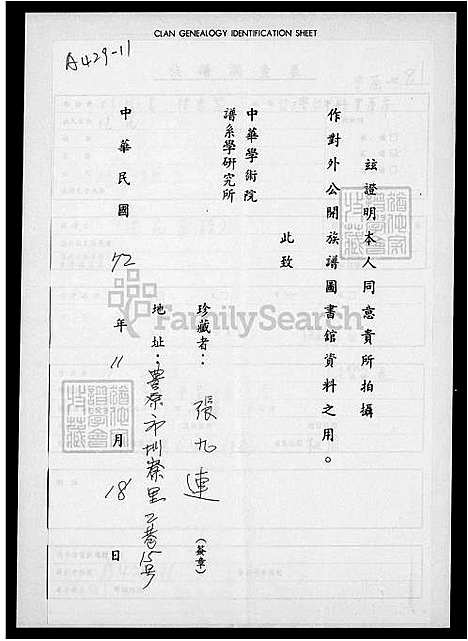 CLAN GENEALOGY IDENTIFICATION SHEET
A429-11
茲證明本人同意貴所拍攝
作對外公開族譜圖書館資料之用。
此致
中華學術院
譜系學研究所
珍藏者：張九連（簽章）
地址：豐原市圳寮里二巷15号
中華民國72年11月18日
FamilySearch